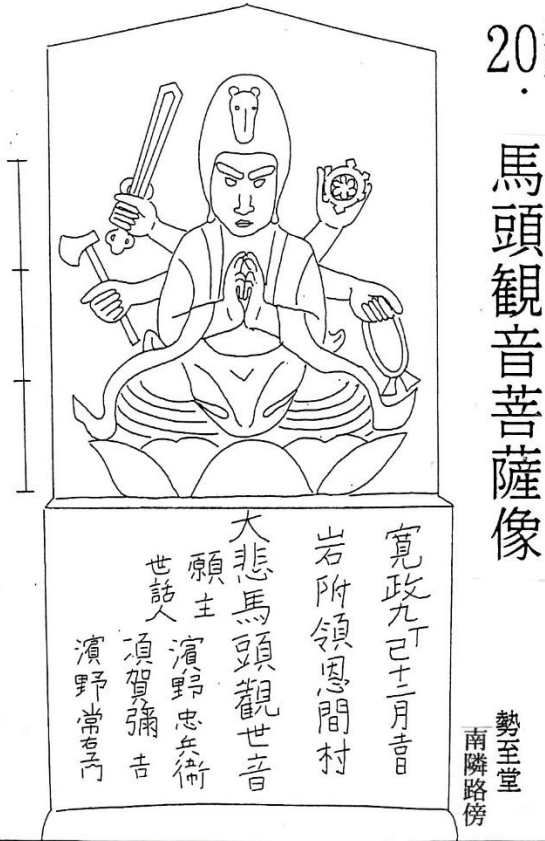 20. 馬頭観音菩薩像
勢至堂
南隣路傍
寛政九丁巳十二月吉日
岩附領恩間村
大悲馬頭觀世音
願主 濱野忠兵衛
世話人 須賀彌吉
濱野常右衛門